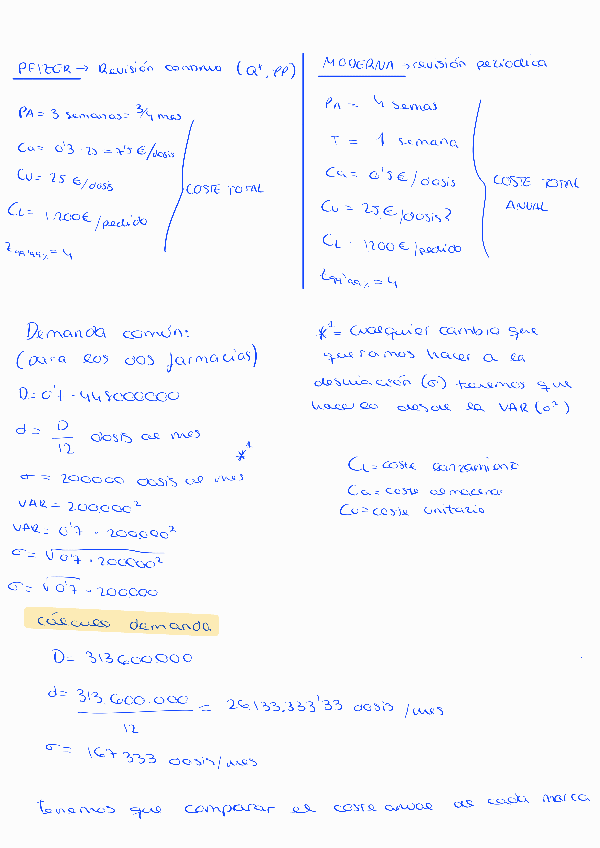 PFIZER → Revisión continua (Q*, PP)
PA = 3 semanas = 3/4 mes
Ca = 0'3 · 25 = 7'5 €/dosis
Cu = 25 €/dosis
COSTE TOTAL
CL = 1.200€/pedido
Z99'99% = 4
MODERNA → revisión periodica
PA = 4 semas
T = 1 semana
Ca = 0'5€/dosis
COSTE TOTAL
ANUAL
Cu = 25€/dosis?
CL = 1200€/pedido
Z99'99% = 4
Demanda común:
(para los dos farmacias)
D = 0'7 · 448000000
d = D/12 dosis al mes
σ = 200000 dosis al mes *1
VAR = 200.000²
VAR = 0'7 · 200.000²
σ = √0'7 · 200000²
σ = √0'7 · 200000
*1 = Cualquier cambio que
queramos hacer a la
desviación (σ) tenemos que
hacerlo desde la VAR (σ²)
CL = coste lanzamiento
Ca = coste almacenar
Cu = coste unitario
cálculo demanda
D = 313600.000
d = 313.600.000/12 = 26.133.333'33 dosis/mes
σ = 167333 dosis/mes
tenemos que comparar el coste anual de cada marca